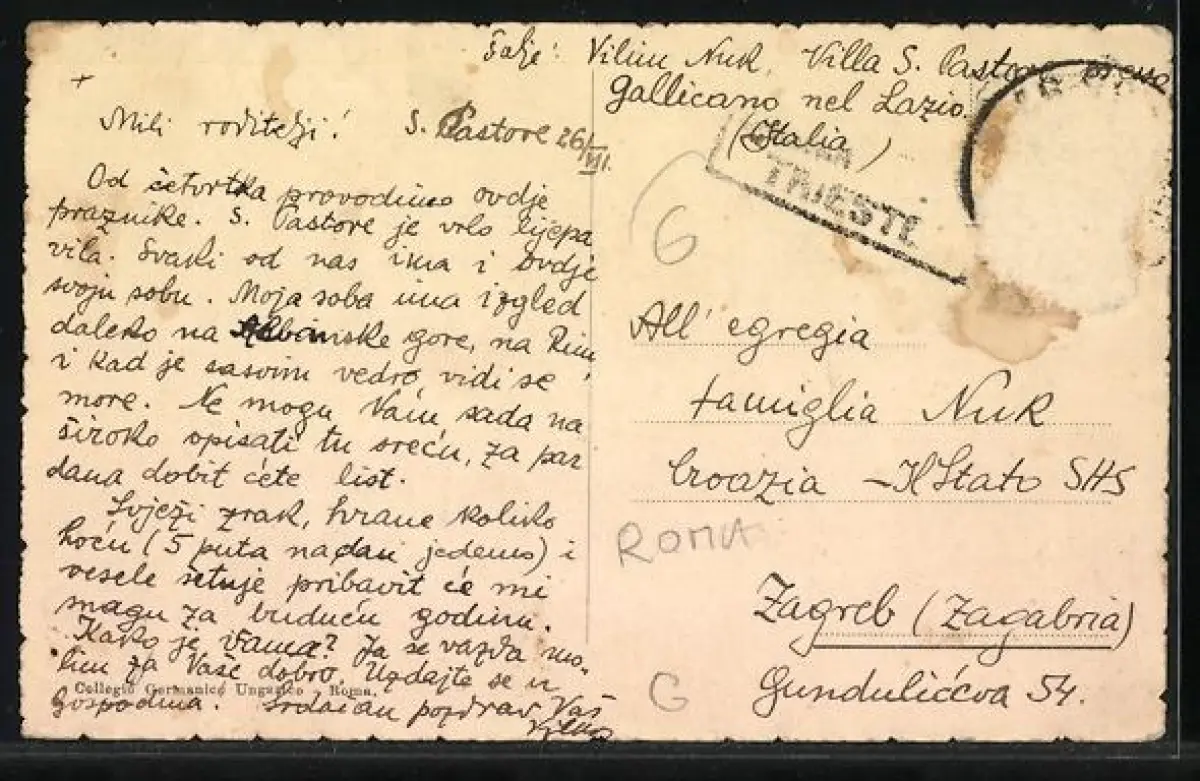 Šalje: Vilim Nuk, Villa S. Pastore
Gallicano nel Lazio.
(Italia)
+
Mili roditelji! S. Pastore 26/VII.
Od četvrtka provodimo ovdje
praznike. S. Pastore je vrlo lijepa
vila. Svaki od nas ima i ovdje
svoju sobu. Moja soba ima izgled
daleko na Albanske gore, na Rim,
i kad je sasvim vedro, vidi se
more. Ne mogu Vam sada na
široko opisati tu sreću, za par
dana dobit ćete list.
Svježi zrak, hrane koliko
hoću (5 puta na dan jedemo) i
vesele šetnje pribavit će mi
snagu za buduću godinu.
Kako je Vama? Ja se vazda mo-
lim za Vaše dobro. Uzdajte se u
Gospodina. Srdačan pozdrav Vaš
Vilim
Collegio Germanico Ungarico - Roma.
TRIESTE
6
All' egregia
famiglia Nuk
Croazia - Il Stato SHS
ROMA
Zagreb (Zagabria)
Gundulićeva 54.
G